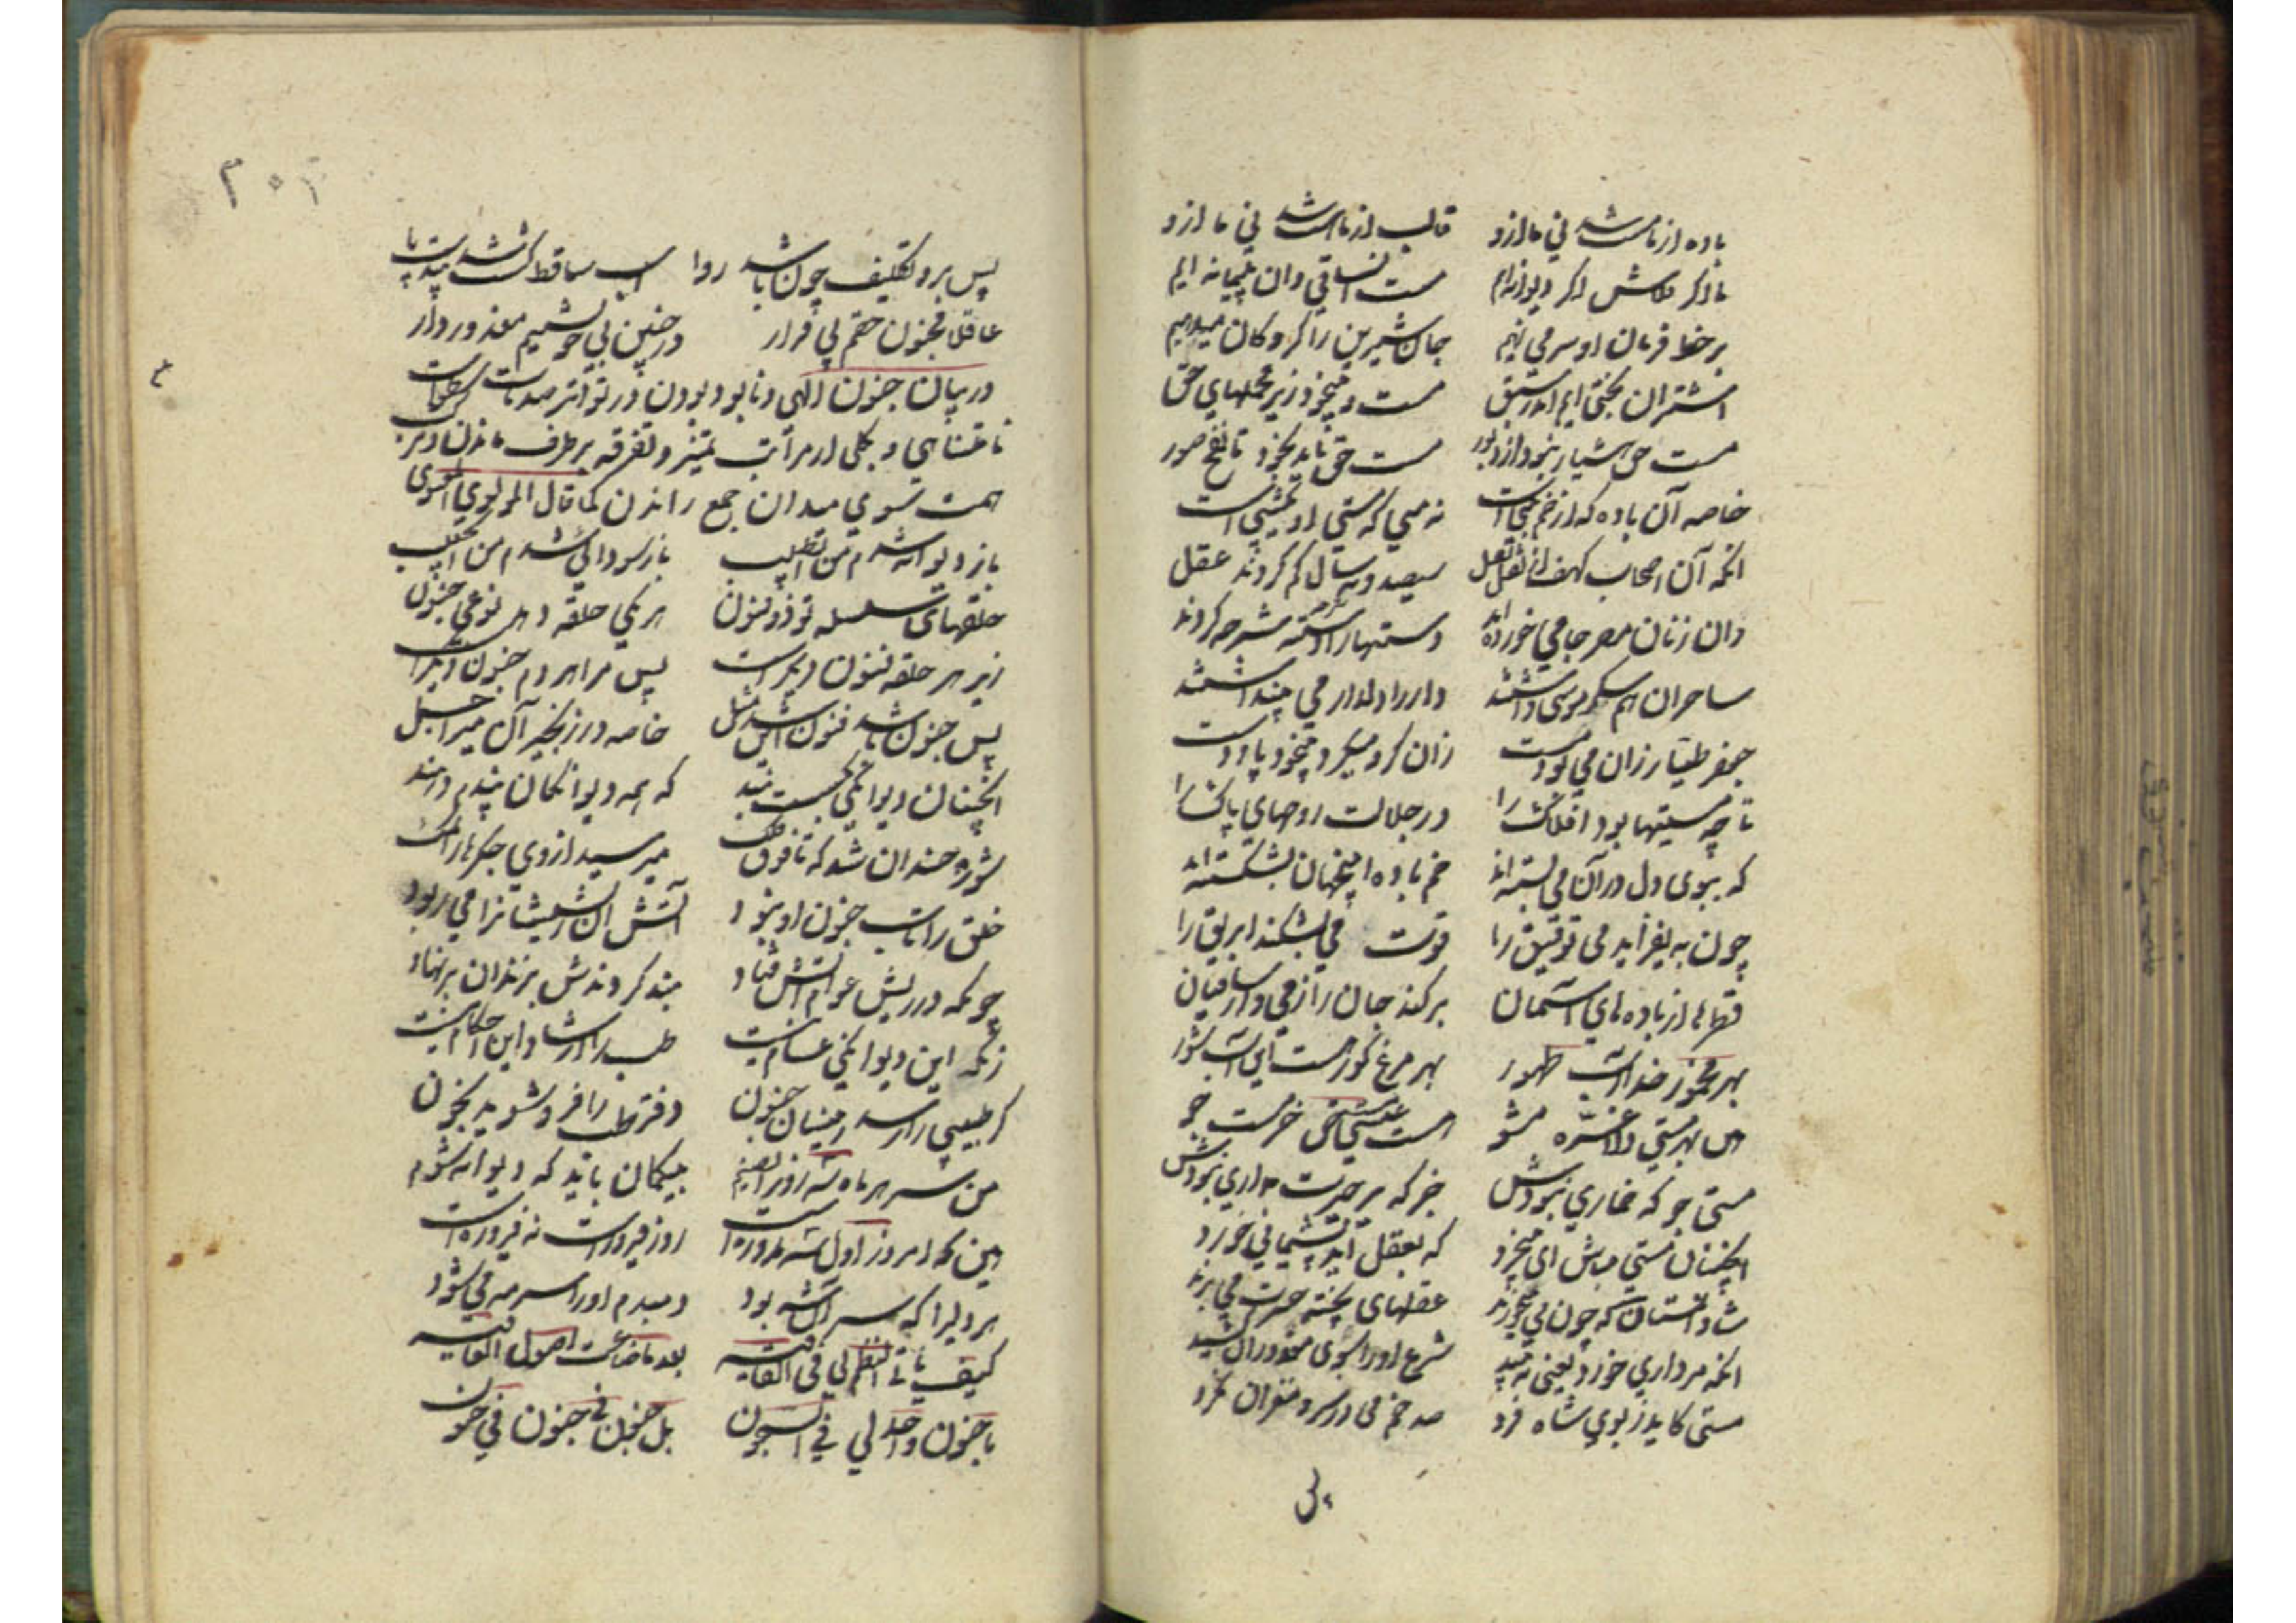 باده از ما مست شد نی ما ازو قالب از ما هست شد نی ما ازو
ما اگر قلاش اگر دیوانه‌ایم مست آن ساقی و آن پیمانه ایم
بر خط فرمان او سر می نهیم جان شیرین را گروگان میدهیم
اشتران بختی ایم اندر سبق مست و بیخود زیر محملهای حق
مست حق هشیار نبود از دبور مست حق ناید بخود تا نفخ صور
خاصه آن باده که از خم نبی است نه میی که مستی او یکشبی است
آنکه آن اصحاب کهف از نقل نقل سیصد و نه سال گم کردند عقل
وان زنان مصر جامی خورده اند دستها را شرحه شرحه کردند
ساحران هم سکر موسی داشتند دار را دلدار می پنداشتند
جعفر طیار زان می بود مست زان گرو میکرد بیخود پا و دست
تا چه مستیها بود افلاک را در جلالت روحهای پاک را
که ببوی دل در آن می بسته اند خم باده اینجهان بشکسته اند
چون به یفزاید می توفیق را قوت می بشکند ابریق را
قطره‌ها از باده های آسمان برکند جان را ز می وز ساقیان
بهر مخمور خدا آب طهور بهر مرغ کور هست این آب شور
هین بهر مستی دلا غره مشو هست عیسی مست حق خر مست جو
مستی جو که خماری نبودش جز که بر حیرت مداری نبودش
آنچنان مستی مباش ای بیخرد که بعقل آید پشیمانی خورد
شاد مستان که چون می میخورند عقلهای پخته حسرت می برند
آنکه مرداری خورد یعنی نبید شرع او را سوی معذوران کشید
مستی کاید ز بوی شاه فرد صد خم می در سر و مغز آن نکرد
پس
۲۰۲
پس برو تکلیف چون باشد روا اسب ساقط گشت شد بیدست و پا
عاقلا مجنون حقم بی قرار در چنین بی خویشیم معذور دار
در بیان جنون الهی و نابود بودن در تواتر صدمات سطوات
نامتناهی و بکلی از مراتب تمیز و تفرقه برطرف ماندن و مرکب
همت سوی میدان جمع راندن کما قال المولوی المعنوی
باز دیوانه شدم من ای طبیب باز سودایی شدم من ای حبیب
حلقهای سلسله تو ذو فنون هر یکی حلقه دهد نوعی جنون
زیر هر حلقه فنون دیگر است پس مرا هر دم جنون دیگر است
پس جنون باشد فنون این شد مثل خاصه در زنجیر آن میر اجل
آنچنان دیوانگی بگسست بند که همه دیوانگان پندم دهند
شور چندان شد که تا فوق فلک میرسید از وی جگرها را نمک
خلق را تاب جنون او نبود آتش آن ریشیشانرا می ربود
چونکه در ریش عوام آتش فتاد بند کردندش بزندان بر نهاد
زانکه این دیوانگی عام نیست طب را ارشاد این احکام نیست
گر طبیبی را رسد زینسان جنون دفتر طب را فرو شوید بخون
من سر هر ماه سه روز ای صنم بیگمان باید که دیوانه شوم
هین که امروز اول سه روزه است روز فیروز است نه فیروزه است
هر دلیرا که سر آن شه بود دمبدم او را سر مه می شود
کیف یأتی النظم لی فی القافیه بعد ما ضاعت اصول العافیه
با جنون واحد لی فی الشجون بل جنون فی جنون فی جنون